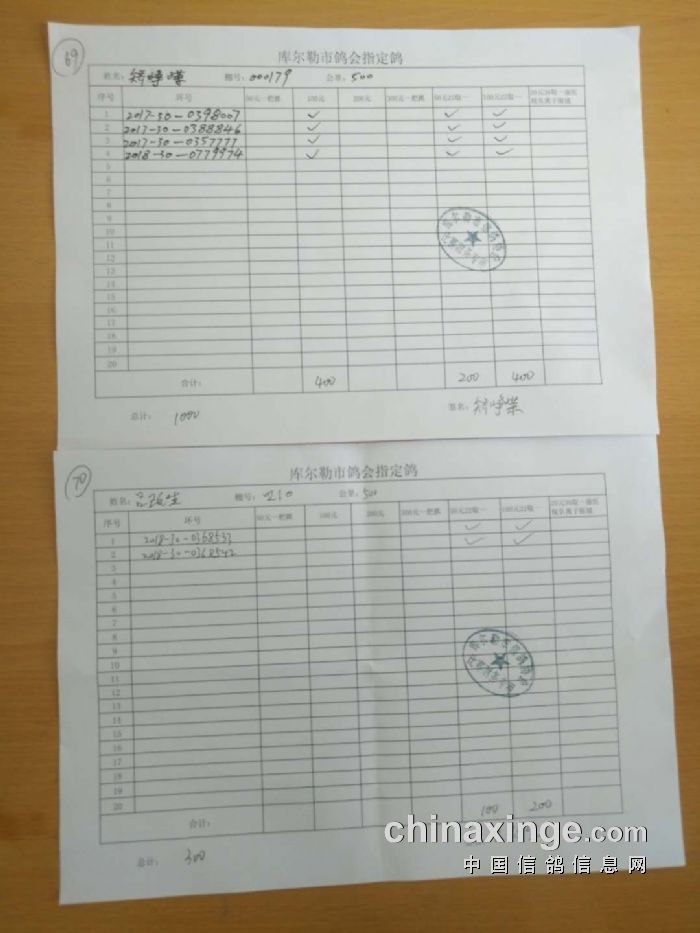 69
库尔勒市鸽会指定鸽
姓名: 棚号: 000179 公里: 500
序号 环号 50元一把抓 100元 200元 300元一把抓 50元22取一 100元22取一
1 2017-30-0398007 ✓ ✓ ✓
2 2017-30-0388846 ✓ ✓ ✓
3 2017-30-0357777 ✓ ✓ ✓
4 2018-30-0779974 ✓ ✓ ✓
5
6
7
8
9
10
11
12
13
14
15
16
17
18
19
20
合计: 400 200 400
总计: 1000 签名:
70
库尔勒市鸽会指定鸽
姓名: 棚号: 公里: 500
序号 环号 50元一把抓 100元 200元 300元一把抓 50元22取一 100元22取一
1 2018-30-0368537 ✓ ✓
2 2018-30-0368542 ✓ ✓
3
4
5
6
7
8
9
10
11
12
13
14
15
16
17
18
19
20
合计: 100 200
总计: 300
chinaxinge.com
中国信鸽信息网